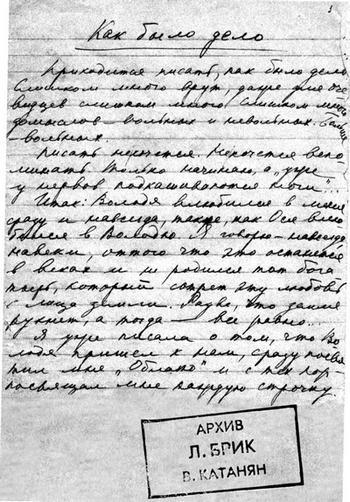 Как было дело
Приходится писать, как было дело.
Слишком много врут, даже для оче
видцев слишком много слишком много
домыслов – вольных и невольных. Больше
– вольных.
Писать не хочется. Не хочется вспо
минать. Только начинаю, а "уже
у нервов подкашиваются ноги".
Итак: Володя влюбился в меня
сразу и навсегда, также, как Ося влю
бился в Володю. Я говорю – навсегда,
навеки, оттого что это останется
в веках и не родился тот бога
тырь, который сотрет эту любовь
с лица земли. Разве, что земля
рухнет, а тогда – все равно...
Я уже писала о том, что Во
лодя пришел к нам, сразу посвя
тил мне "Облако" и с тех пор
посвящал мне каждую строчку.
АРХИВ
Л. БРИК
В. КАТАНЯН